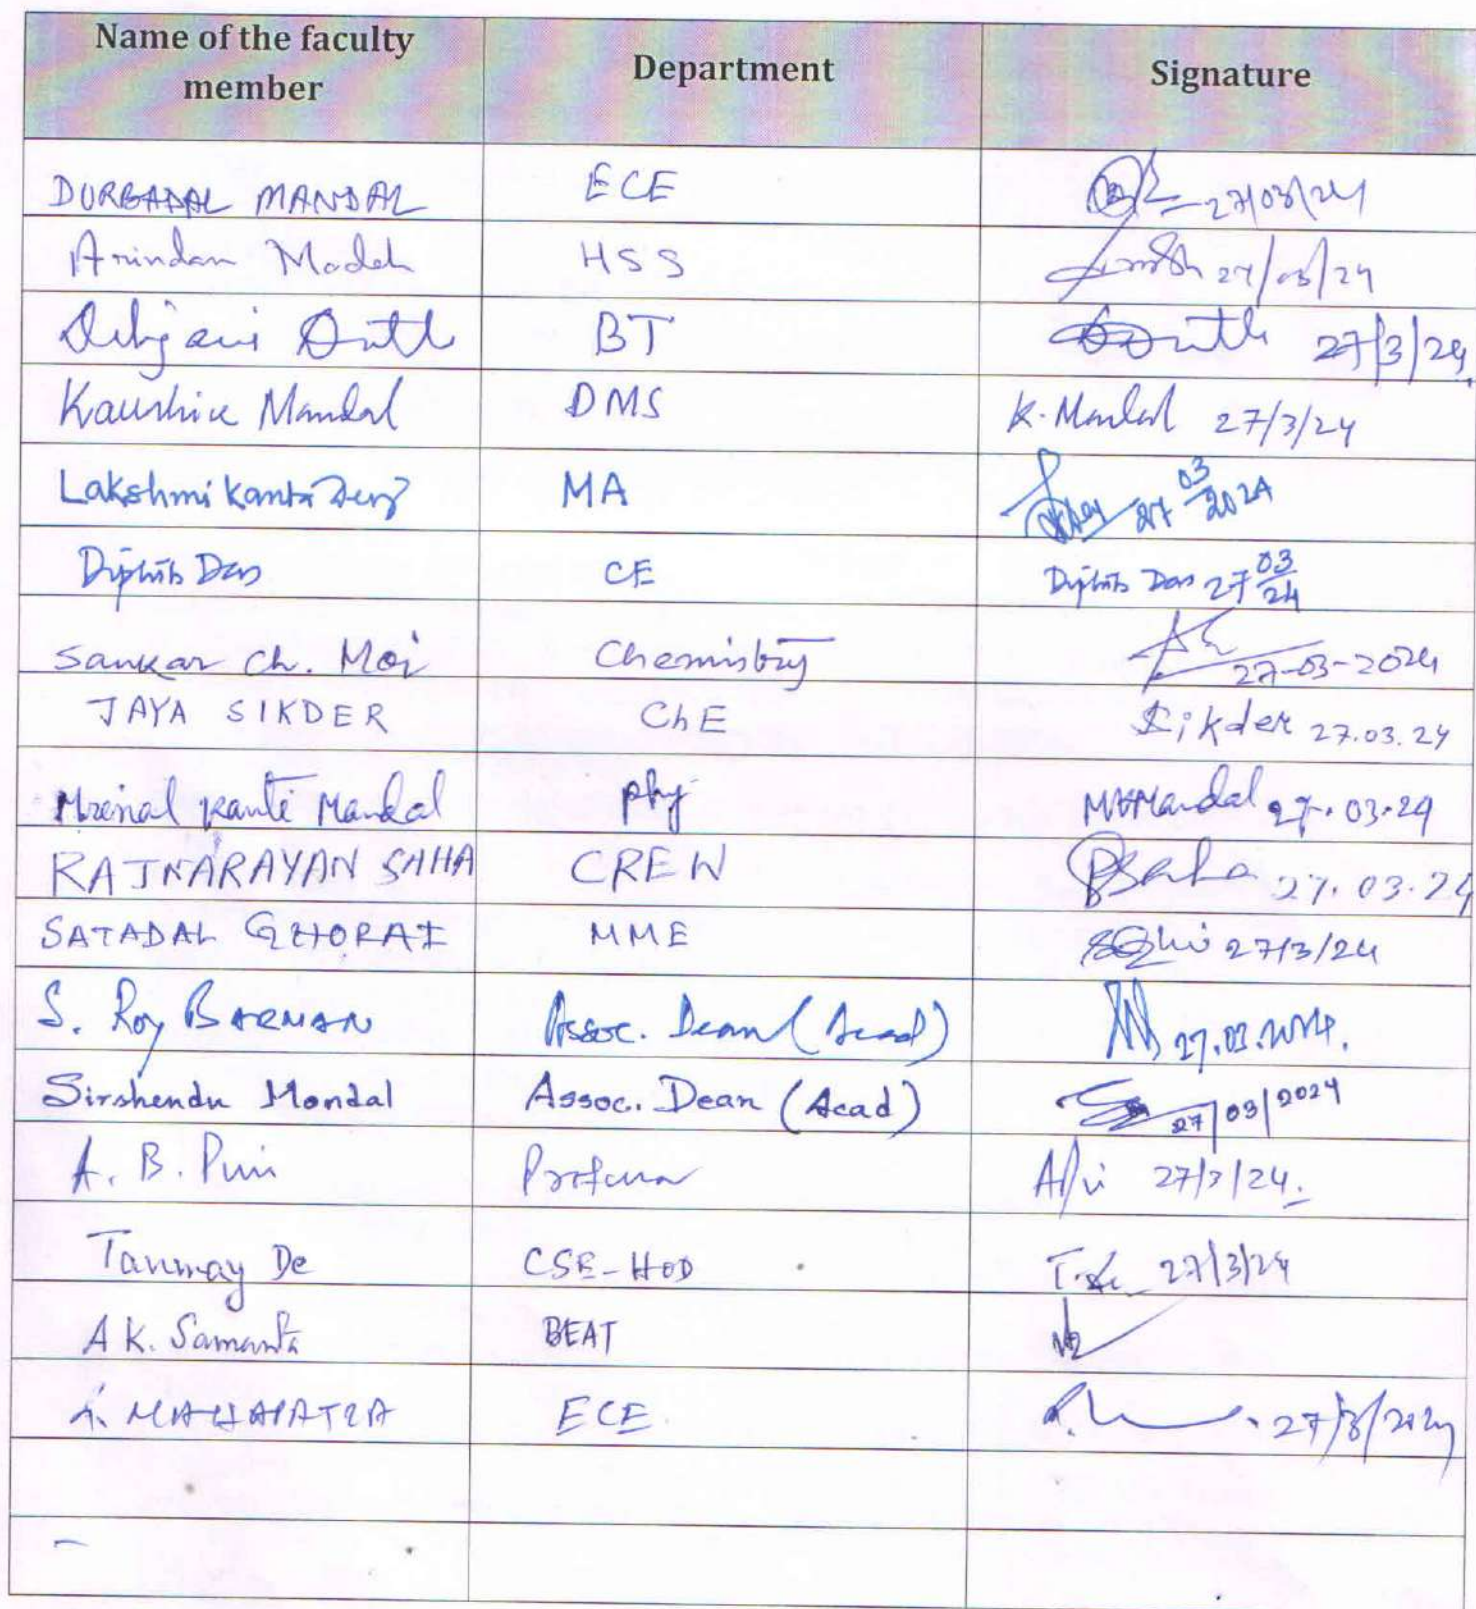 Name of the faculty member Department Signature
DURBADAL MANDAL ECE 27/03/24
Arindam Modak HSS 27/03/24
Debjani Dutta BT Dutta 27/3/24
Kaushik Mandal DMS K. Mandal 27/3/24
Lakshmi Kanta Dey MA 27 03 2024
CE Das 27 03 24
Sankar Ch. Moi Chemistry 27-03-2024
JAYA SIKDER ChE Sikder 27.03.24
Mrinal Kanti Mandal Phy MKMandal 27.03.24
RAJNARAYAN SAHA CREW RSaha 27.03.24
SATADAL GHORAI MME 27/3/24
S. Roy BARMAN Assoc. Dean (Acad) 27.03.2024.
Sirshendu Mondal Assoc. Dean (Acad) 27/03/2024
A. B. Puri Professor APuri 27/3/24.
Tanmay De CSE-HOD T. De 27/3/24
A K. Samanta BEAT
MAHAPATRA ECE 27/3/2024